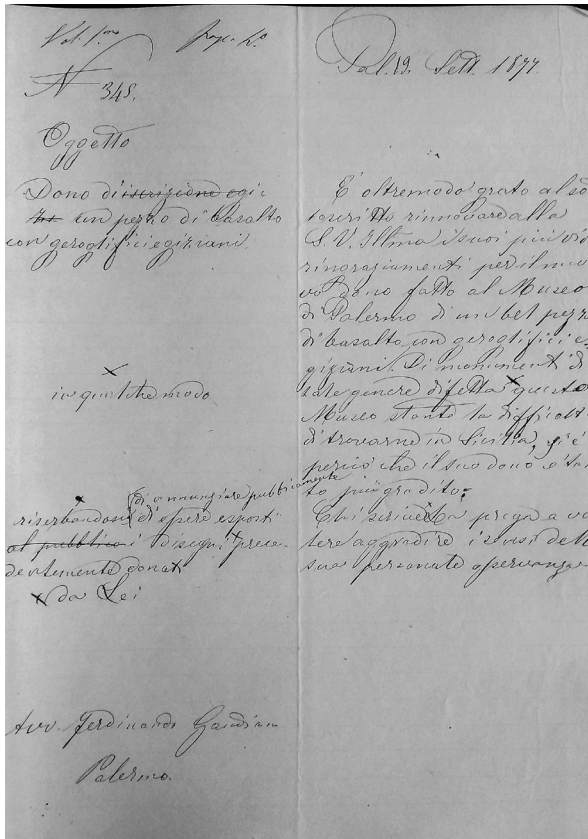 Vol. 1.mo pag. 2.a
N 348.
Oggetto
Dono di iscrizione egi:
un pezzo di basalto
con geroglifici egiziani
×
in qualche modo
×
di annunziare pubblicamente
riserbandosi d'essere esposti
al pubblico i disegni prece-
dentemente donati ×
× da Lei
Avv. Ferdinando
Palermo.
Pal. 19. Sett. 1877.
E' oltremodo grato al sot
toscritto rinnovare alla
S. V. Illma i suoi più viv
ringraziamenti per il nuo
vo dono fatto al Museo
di Palermo di un bel pezz
di basalto con geroglifici e
giziani. Di monumenti di
tale genere difetta × questo
Museo stante la difficolt
di trovarne in Sicilia, e
perciò che il suo dono è tan
to più gradito.
Chi scrive × La prega a vo
lere aggradire i sensi dell
sua personale osservanza